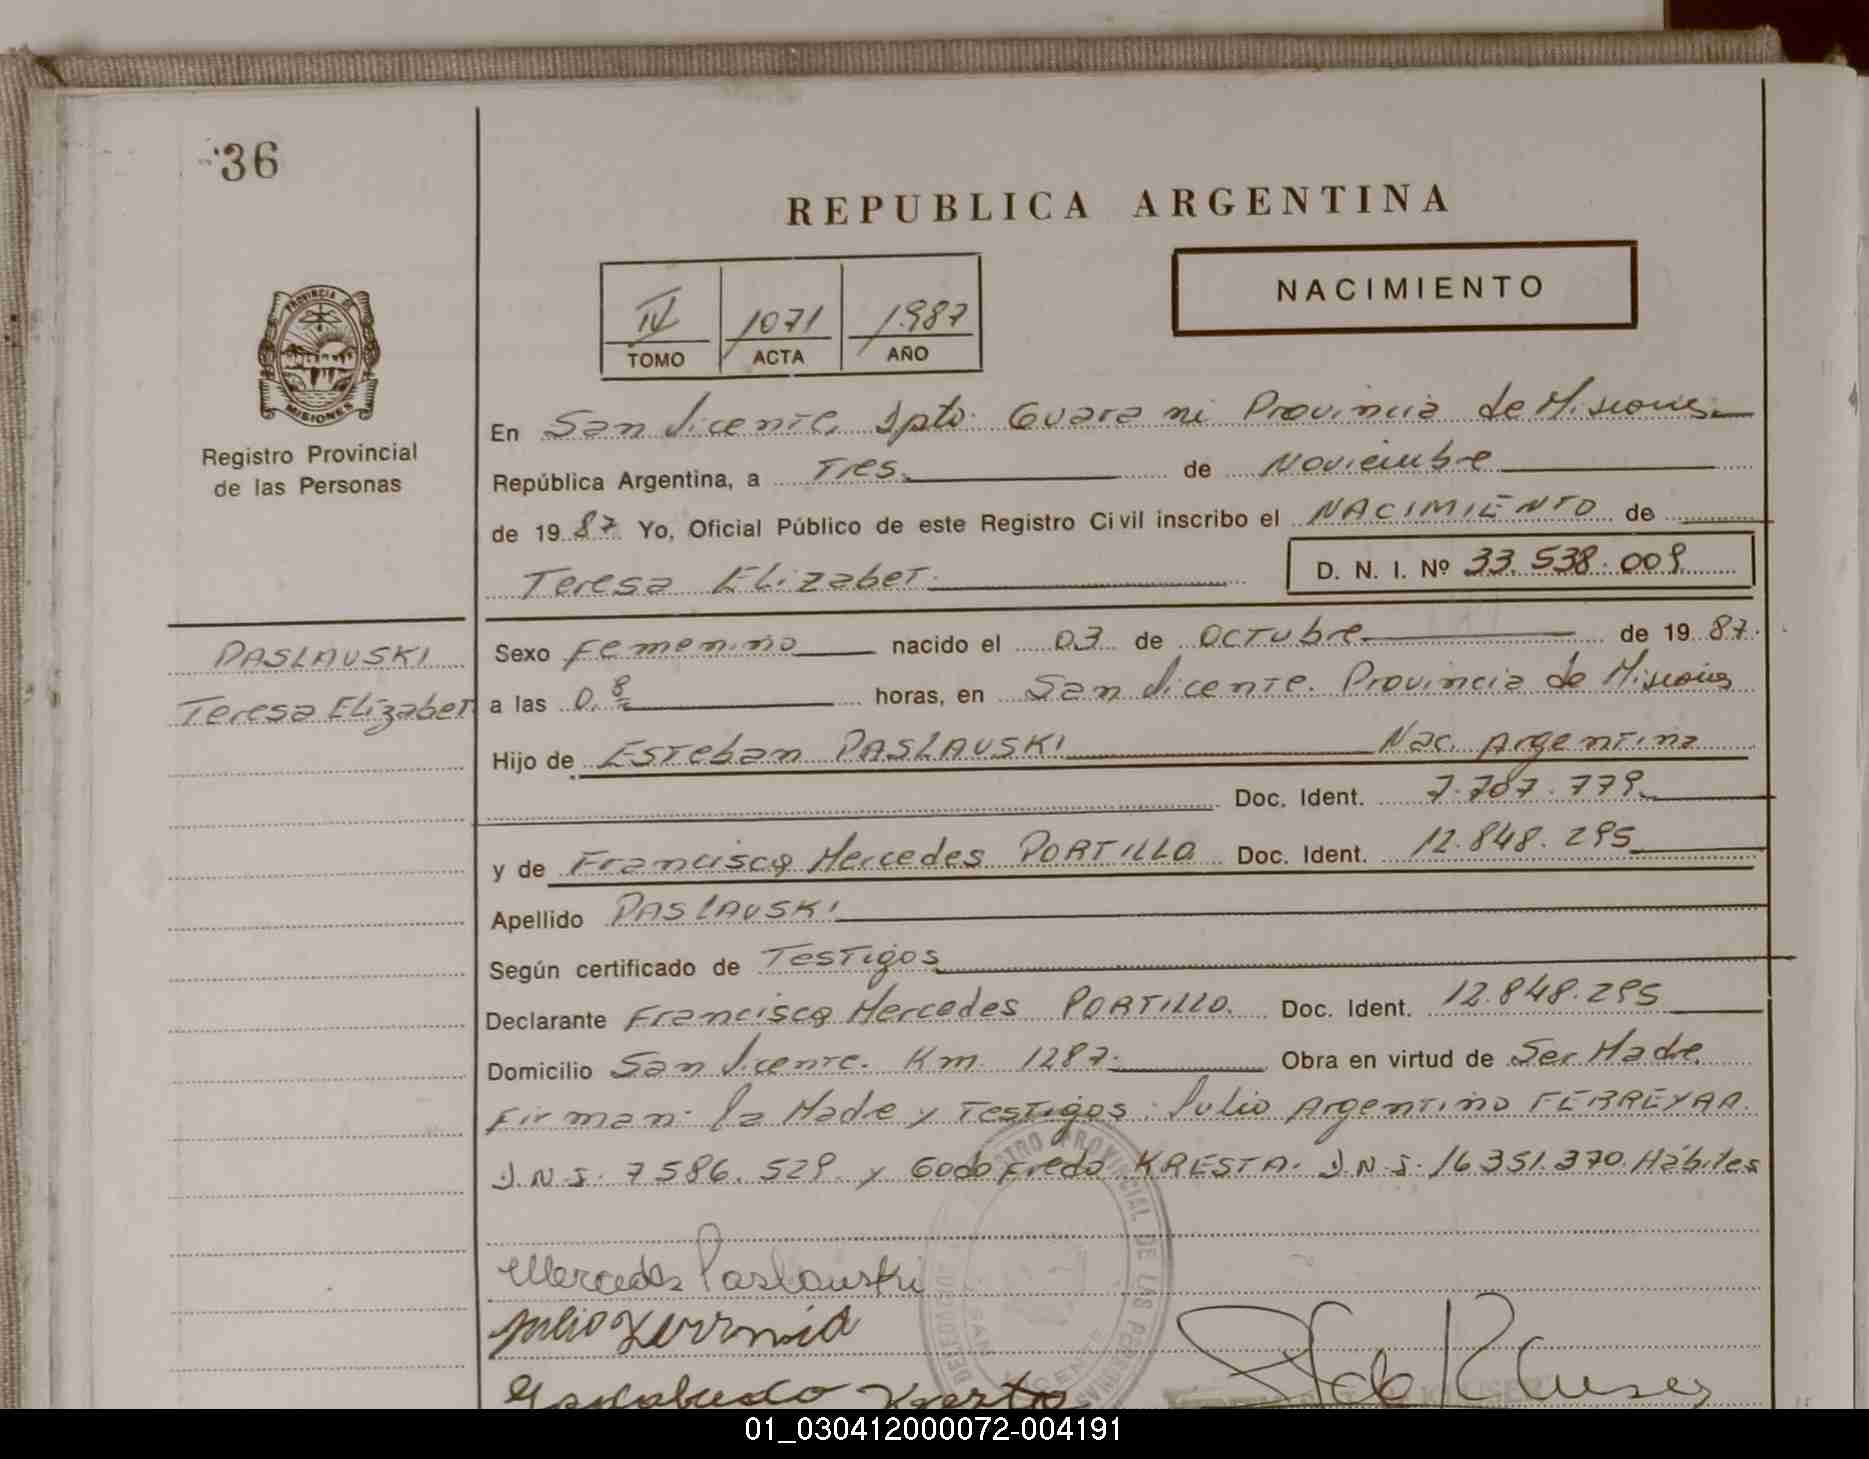 36
REPUBLICA ARGENTINA
NACIMIENTO
IV 1071 1987
TOMO ACTA AÑO
PROVINCIA DE
MISIONES
Registro Provincial
de las Personas
En San Vicente, Dpto. Guarani Provincia de Misiones
República Argentina, a Tres de Noviembre
de 1987 Yo, Oficial Público de este Registro Civil inscribo el NACIMIENTO de
Teresa Elizabet. D. N. I. Nº 33.538.009
PASLAUSKI
Teresa Elizabet
Sexo Femenino nacido el 03 de Octubre de 1987.
a las 0.8 horas, en San Vicente. Provincia de Misiones
Hijo de Esteban PASLAUSKI Nac. Argentina
Doc. Ident. 7.707.779
y de Francisca Mercedes PORTILLO Doc. Ident. 12.848.295
Apellido PASLAUSKI
Según certificado de Testigos
Declarante Francisca Mercedes PORTILLO. Doc. Ident. 12.848.295
Domicilio San Vicente. Km. 1287. Obra en virtud de Ser Madre
Firman: la Madre y Testigos: Julio Argentino FERREYRA.
D.N.I. 7586.529 y Godofredo KRESTA. D.N.I. 16.351.370 Hábiles
REGISTRO PROVINCIAL DE LAS PERSONAS
SAN VICENTE
Mercedes Paslauski
Julio
01_030412000072-004191